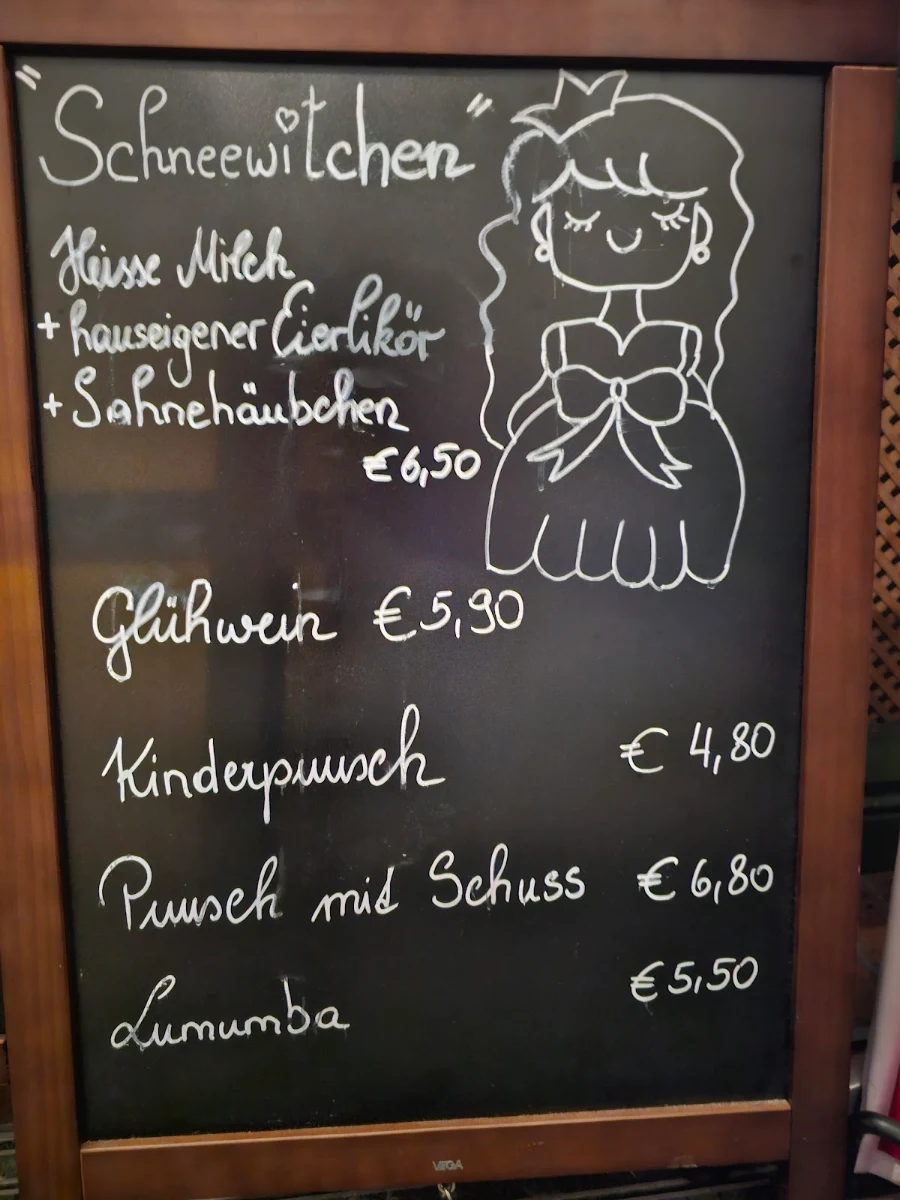 "Schneewitchen"
Heisse Milch
+ hauseigener Eierlikör
+ Sahnehäubchen
€ 6,50
Glühwein € 5,90
Kinderpunsch € 4,80
Punsch mit Schuss € 6,80
Lumumba € 5,50
VEGA